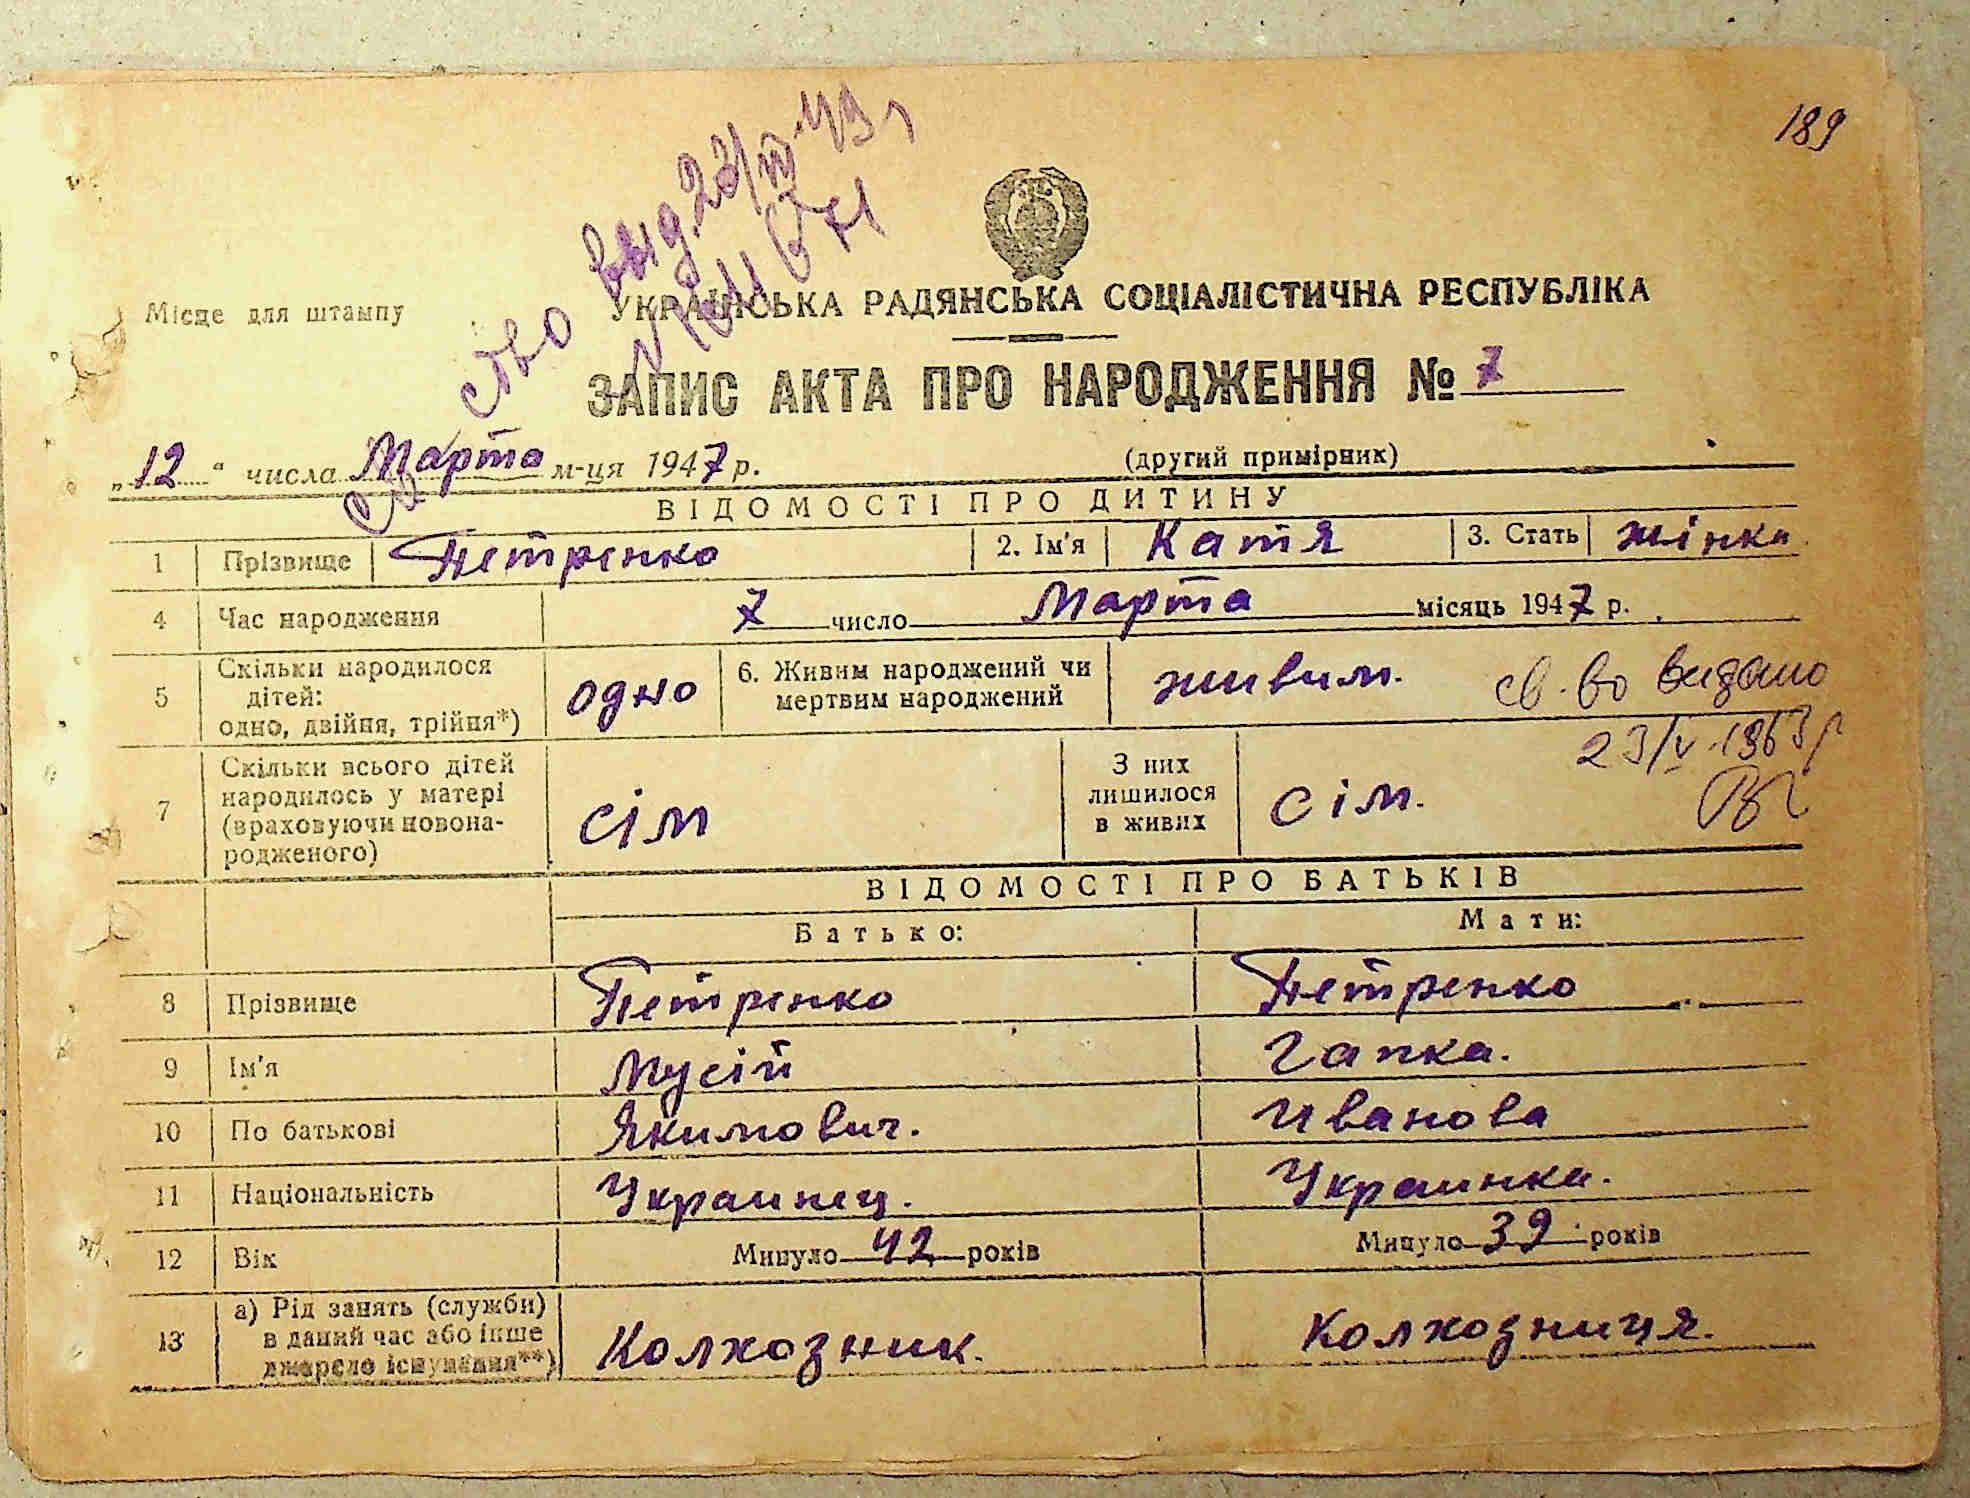 189
Св ство выд. 23/IV-49 г
Місце для штампу
УКРАЇНСЬКА РАДЯНСЬКА СОЦІАЛІСТИЧНА РЕСПУБЛІКА
ЗАПИС АКТА ПРО НАРОДЖЕННЯ № 7
„12“ числа Марта м-ця 1947 р. (другий примірник)
ВІДОМОСТІ ПРО ДИТИНУ
1 Прізвище Петренко 2. Ім'я Катя 3. Стать жінка
4 Час народження 7 число Марта місяць 1947 р.
5 Скільки народилося
дітей:
одно, двійня, трійня*) одно 6. Живим народжений чи
мертвим народжений живим. св. во видано
23/V-1963 р
7 Скільки всього дітей
народилось у матері
(враховуючи новона-
родженого) сім З них
лишилося
в живих сім.
ВІДОМОСТІ ПРО БАТЬКІВ
Батько: Мати:
8 Прізвище Петренко Петренко
9 Ім'я Мусій Гапка.
10 По батькові Якимович. Иванова
11 Національність Украинец. Украинка.
12 Вік Минуло 42 років Минуло 39 років
13 а) Рід занять (служби)
в даний час або інше
джерело існування**) Колхозник. Колхозниця.